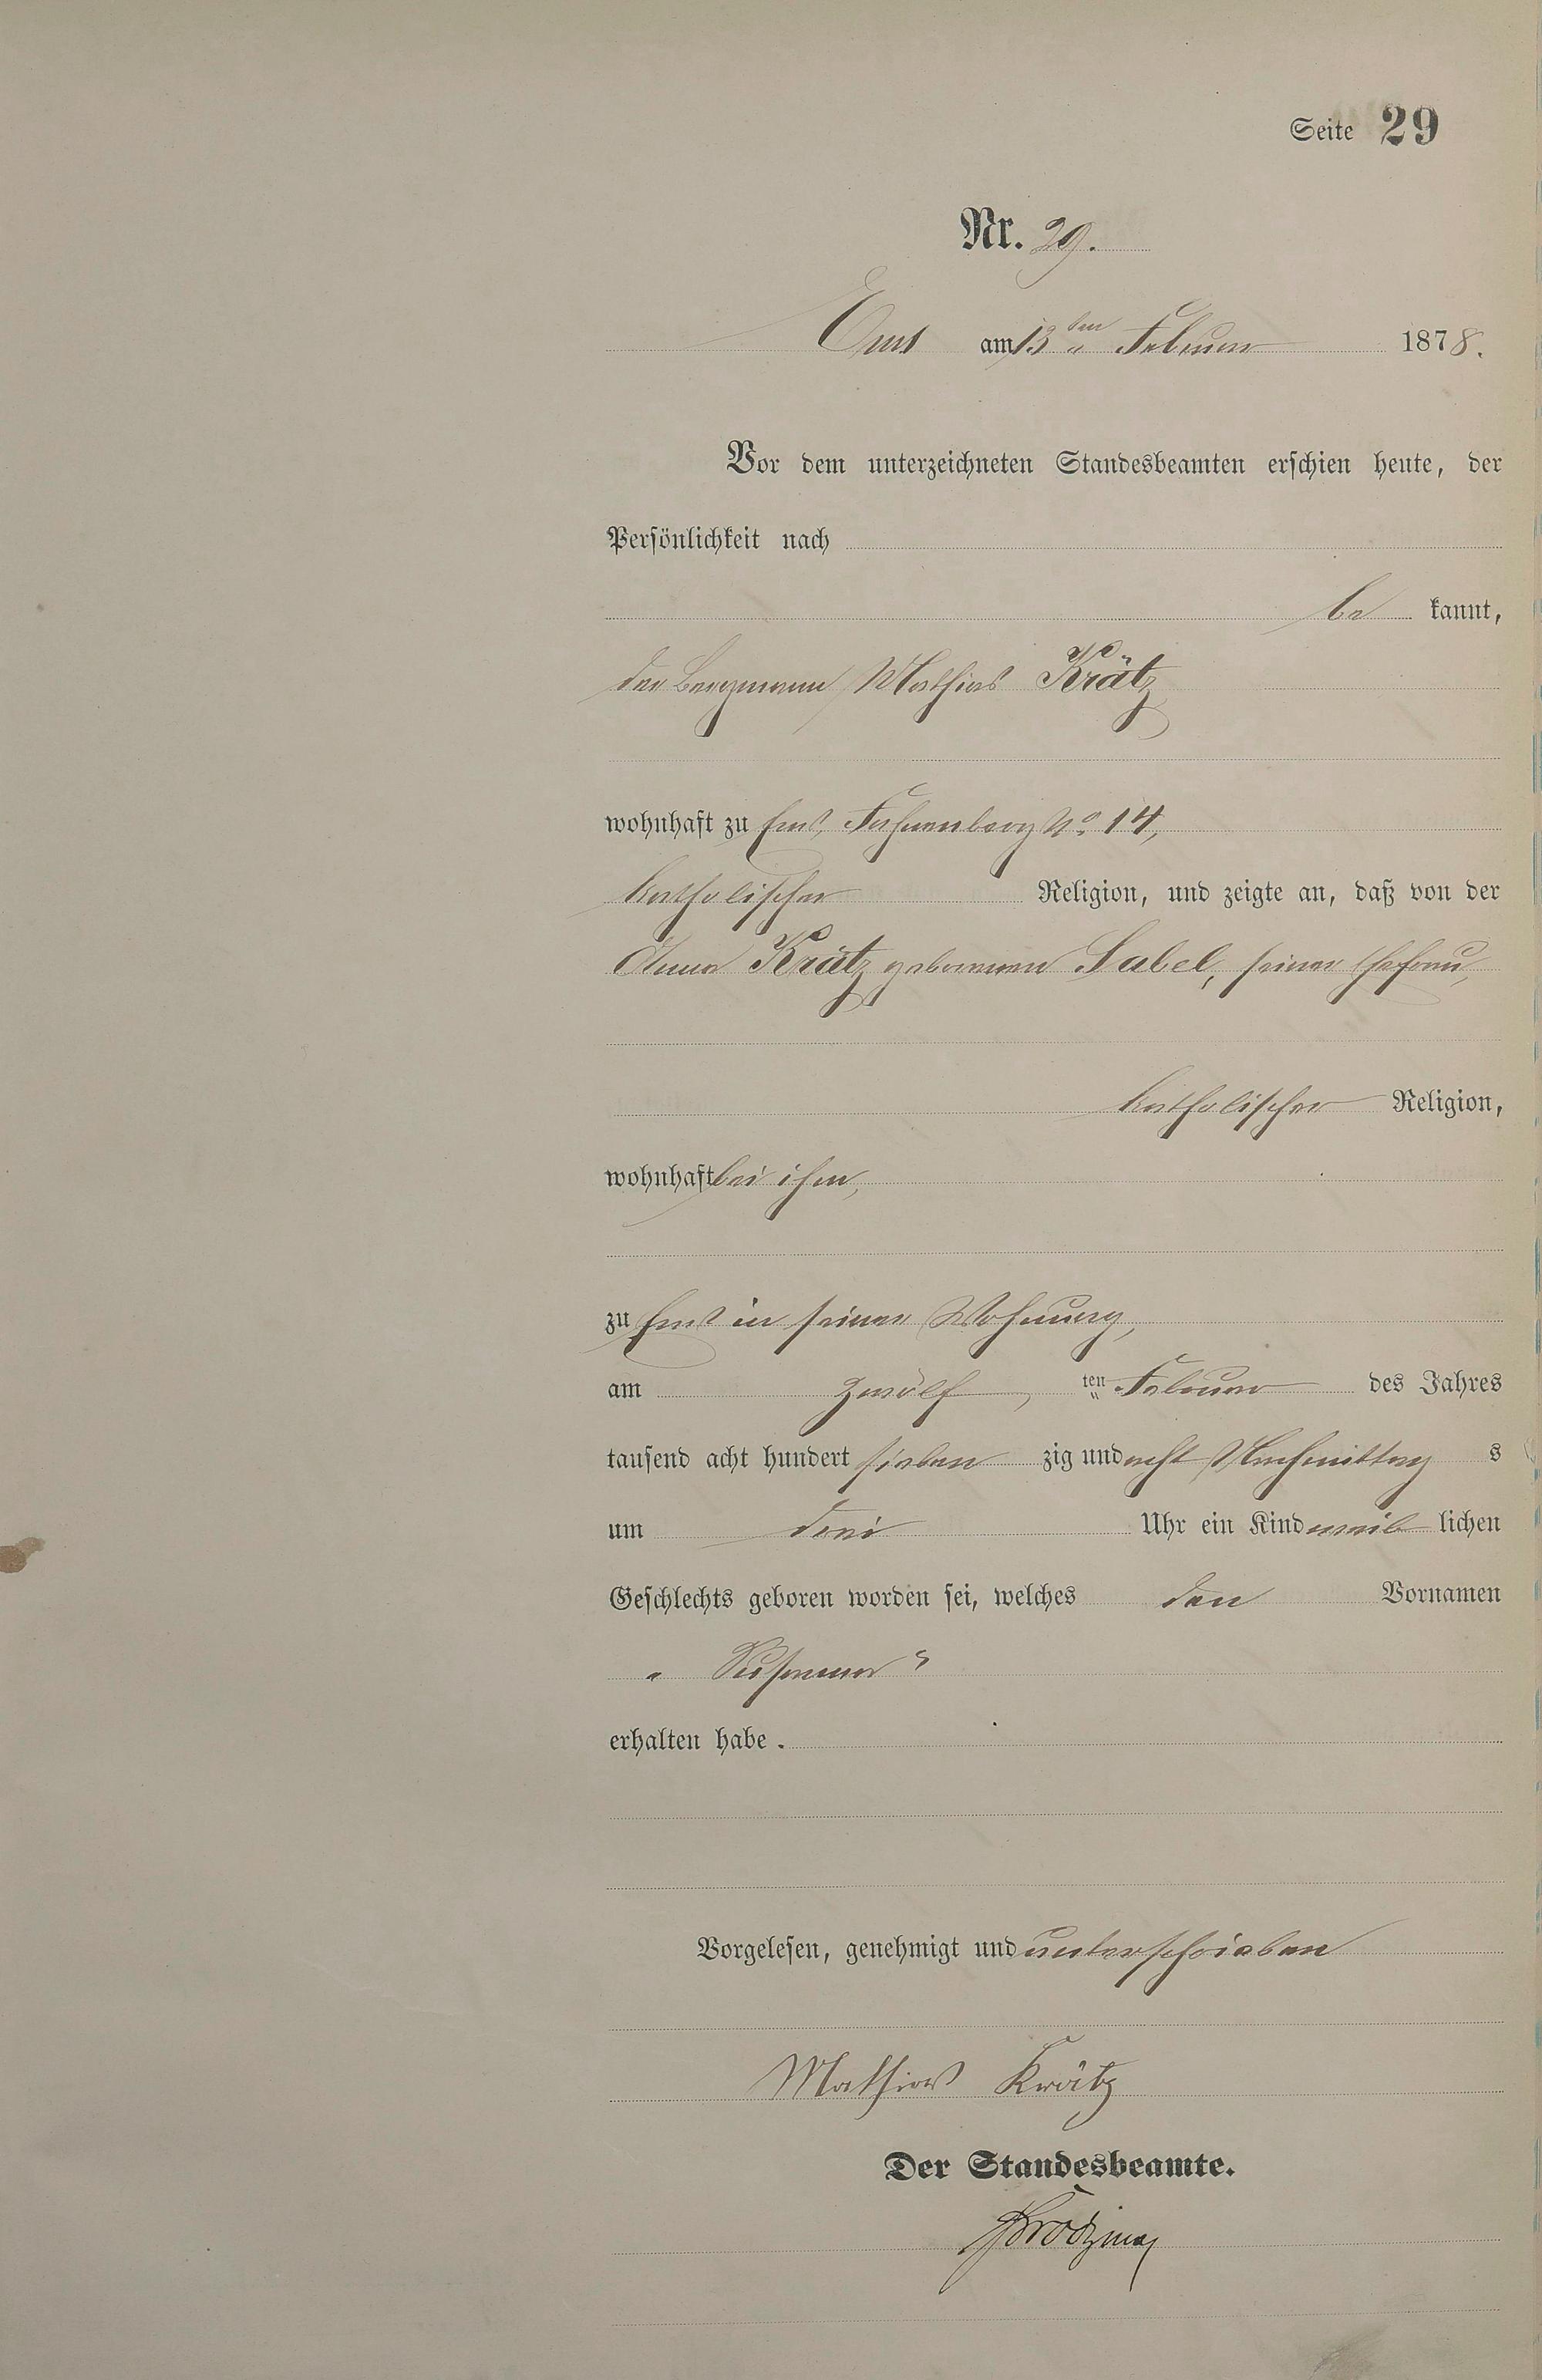 Seite 29
Nr. 29.
Ems am 13ten Februar 1878.
Vor dem unterzeichneten Standesbeamten erschien heute, der
Persönlichkeit nach
be kannt,
der Bergmann Mathias Krätz
wohnhaft zu Ems, No. 14,
katholischer Religion, und zeigte an, daß von der
Anna Krätz geborenen Sabel, seiner Ehefrau,
katholischer Religion,
wohnhaft bei ihm,
zu Ems in seiner Wohnung,
am zwölf ten Februar des Jahres
tausend acht hundert sieben zig und acht Nachmittag s
um drei Uhr ein Kind weib lichen
Geschlechts geboren worden sei, welches den Vornamen
„ Susanna “
erhalten habe.
Vorgelesen, genehmigt und unterschrieben
Mathias Krätz
Der Standesbeamte.